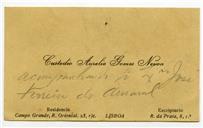 Custodio Aurelio Gomes Neiva
acompanhando o Exmo José
Ferreira do Amaral
Residencia
Campo Grande, R. Oriental,
LISBOA
Escriptorio
R. da Prata, 8, 1.º